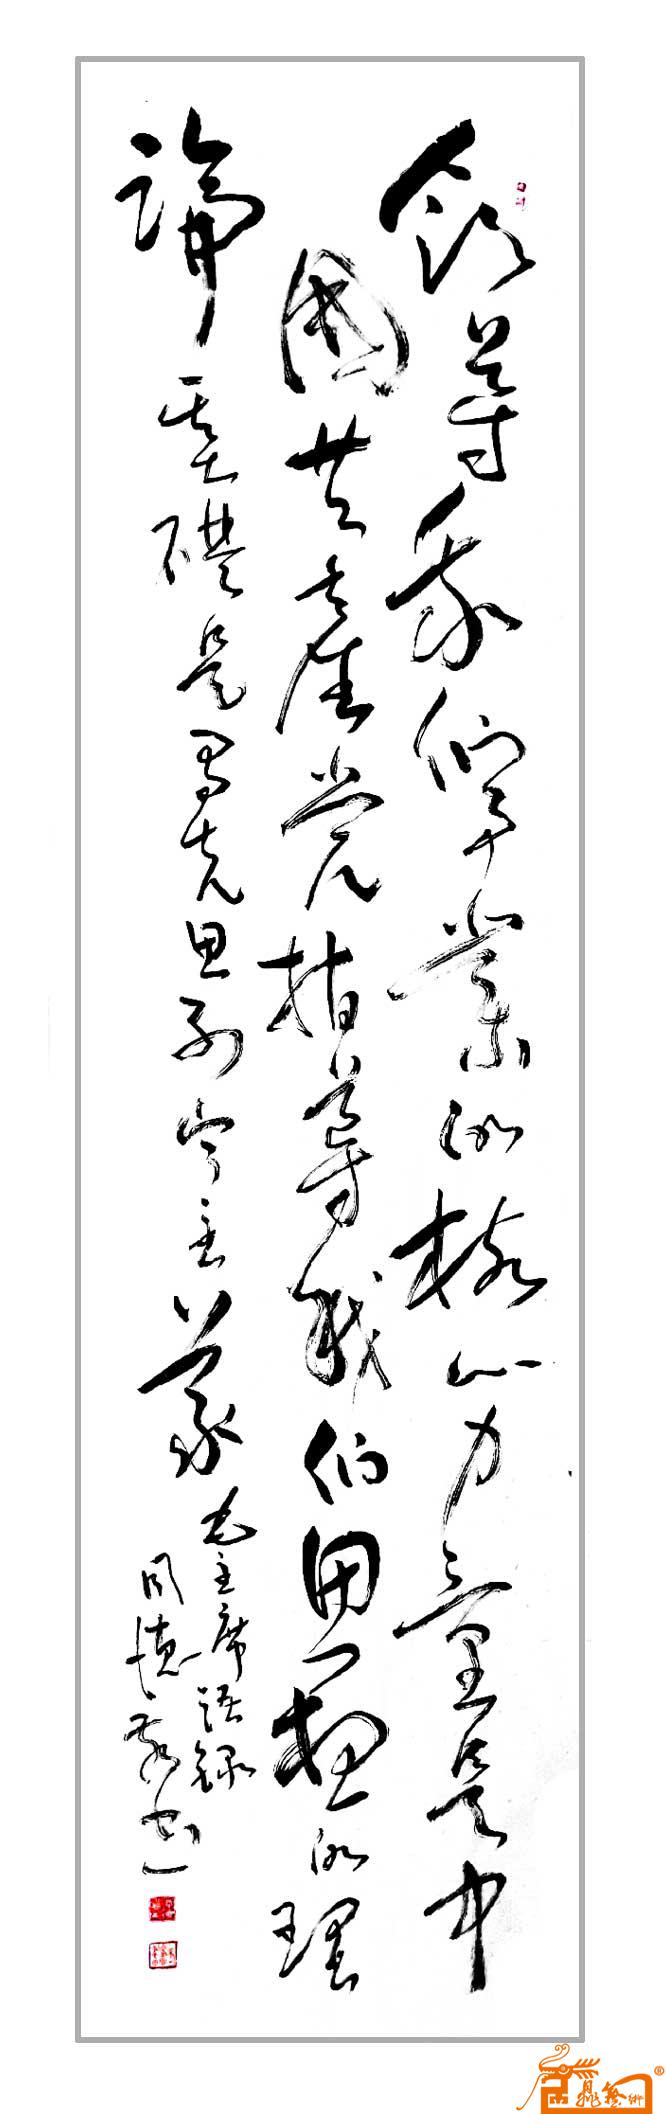 领导我们事业的核心力量是中
国共产党指导我们思想的理
论基础是马克思列宁主义
毛主席语录
周德